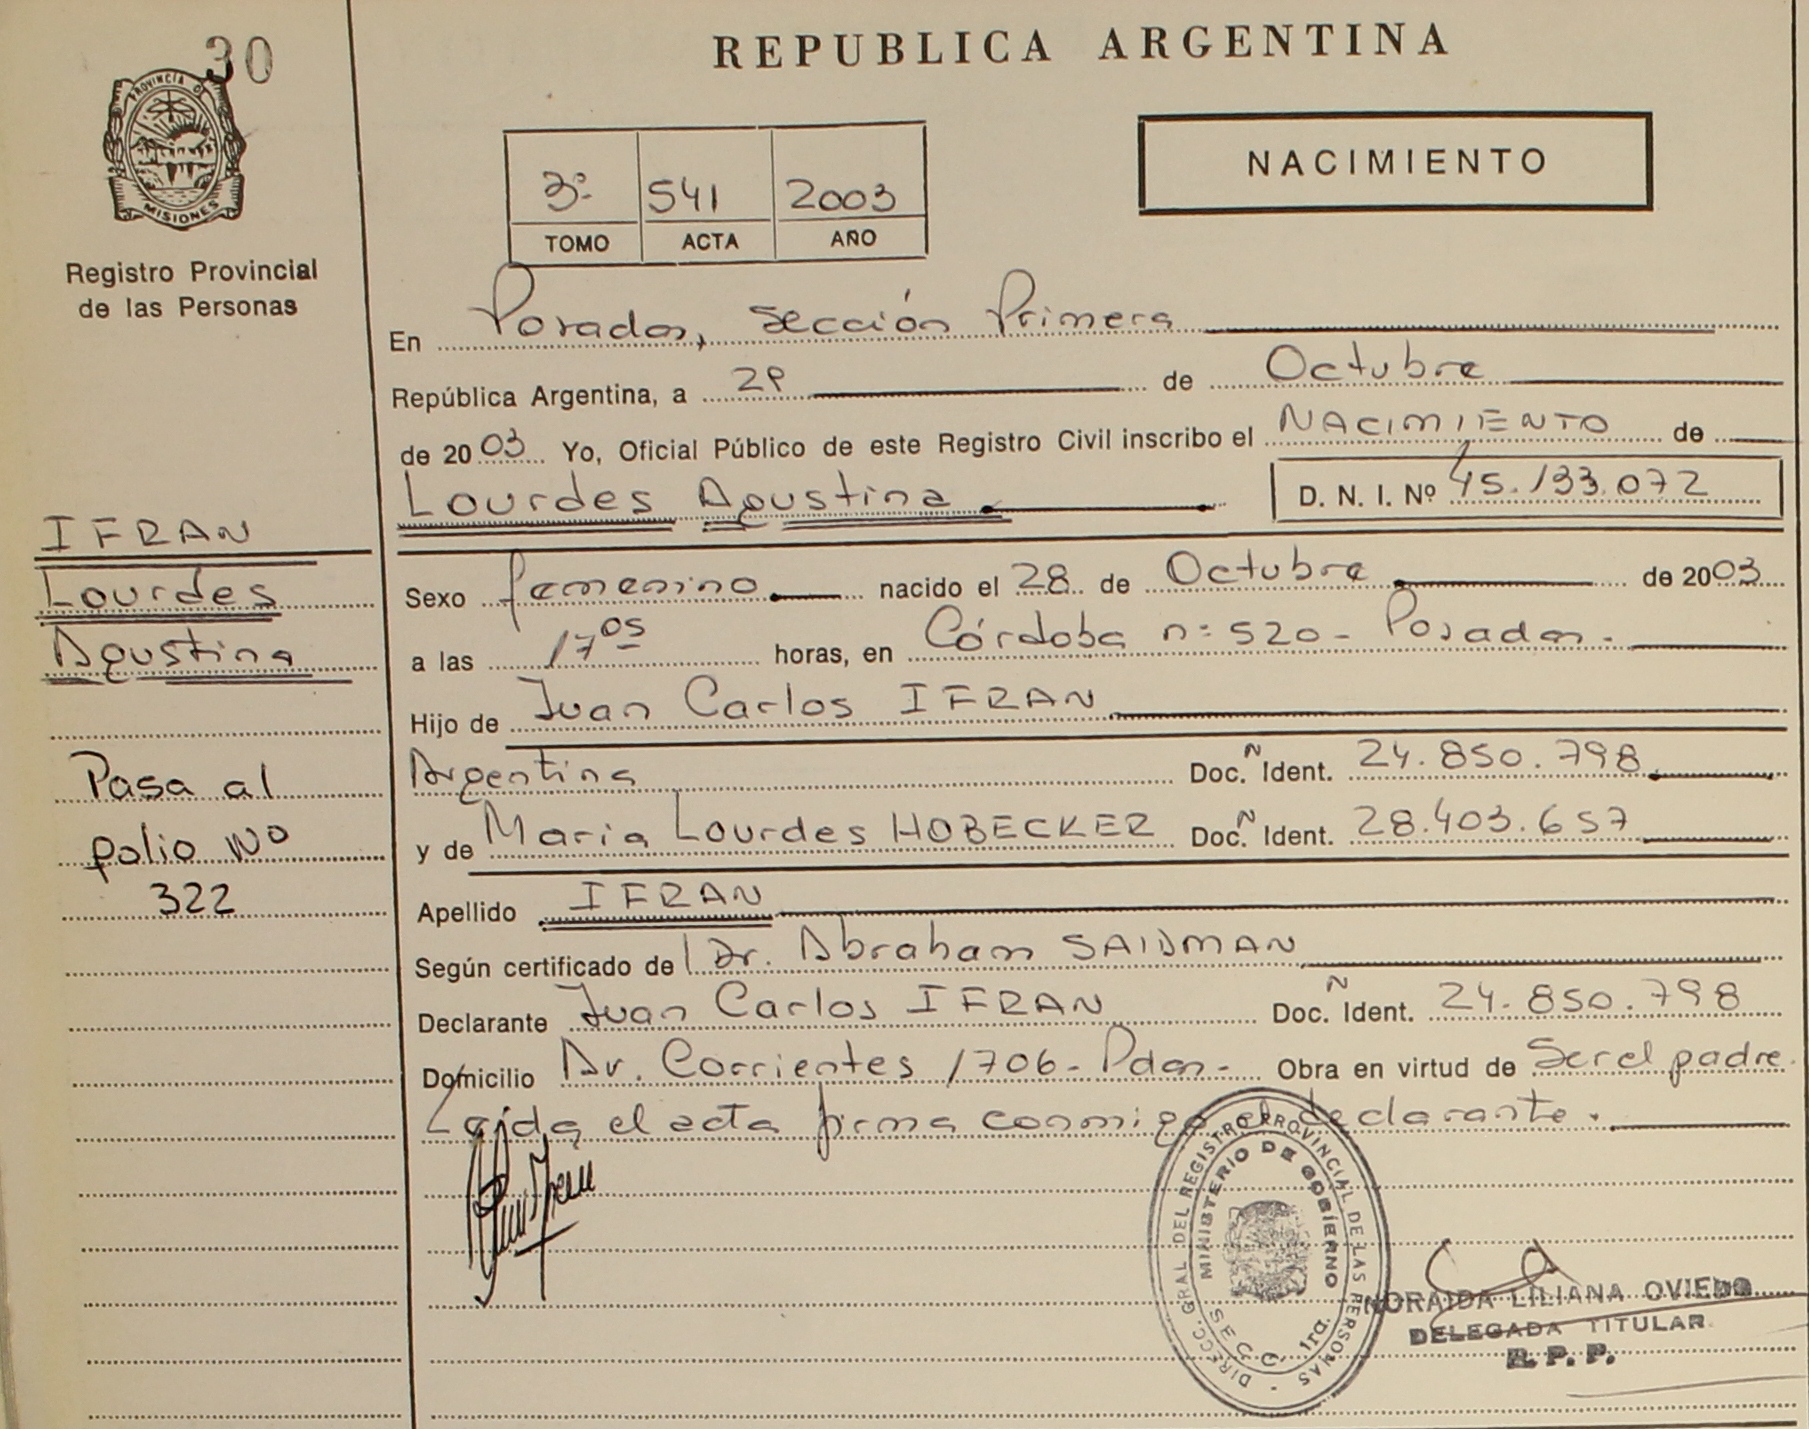 30
PROVINCIA DE
MISIONES
Registro Provincial
de las Personas
REPUBLICA ARGENTINA
NACIMIENTO
3º 541 2003
TOMO ACTA AÑO
En Posadas, Sección Primera
República Argentina, a 29 de Octubre
de 2003 Yo, Oficial Público de este Registro Civil inscribo el NACIMIENTO de
Lourdes Agustina D. N. I. Nº 45.133.072
IFRAN
Lourdes
Agustina
Sexo femenino nacido el 28 de Octubre de 2003
a las 17 05 horas, en Córdoba nº 520 - Posadas -
Hijo de Juan Carlos IFRAN
Argentina Doc. Ñ Ident. 24.850.798
y de Maria Lourdes HOBECKER Doc. Ñ Ident. 28.403.657
Pasa al
folio Nº
322
Apellido IFRAN
Según certificado de Dr. Abraham SAIDMAN
Declarante Juan Carlos IFRAN Doc. Ñ Ident. 24.850.798
Domicilio Av. Corrientes 1706 - Pdas - Obra en virtud de Ser el padre.
Leída el acta firma conmigo el declarante.
DIRECC. GRAL DEL REGISTRO PROVINCIAL DE LAS PERSONAS
MINISTERIO DE GOBIERNO
SECC. 1ra.
NORAIDA LILIANA OVIEDO
DELEGADA TITULAR
R. P. P.